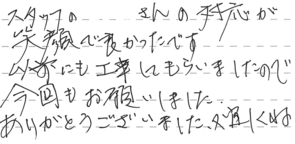 スタッフの さんの対応が
笑顔で良かったです
以前にも工事してもらいましたので
今回もお願いしました.
ありがとうございました、